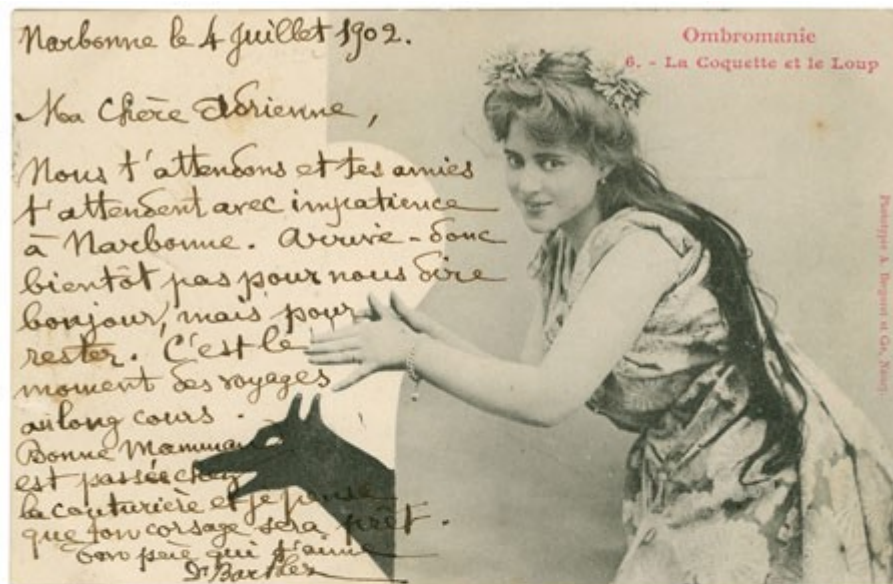 Narbonne le 4 Juillet 1902.
Ma Chère Adrienne,
Nous t'attendons et tes amies
t'attendent avec impatience
à Narbonne. Arrive-donc
bientôt pas pour nous dire
bonjour, mais pour
rester. C'est le
moment des voyages
au long cours.
Bonne Mamman
est passée chez
la couturière et je pense
que ton corsage sera prêt.
ton père qui t'aime
Dr Barthez
Ombromanie
6. - La Coquette et le Loup
Phototypie A. Bergeret et Cie, Nancy